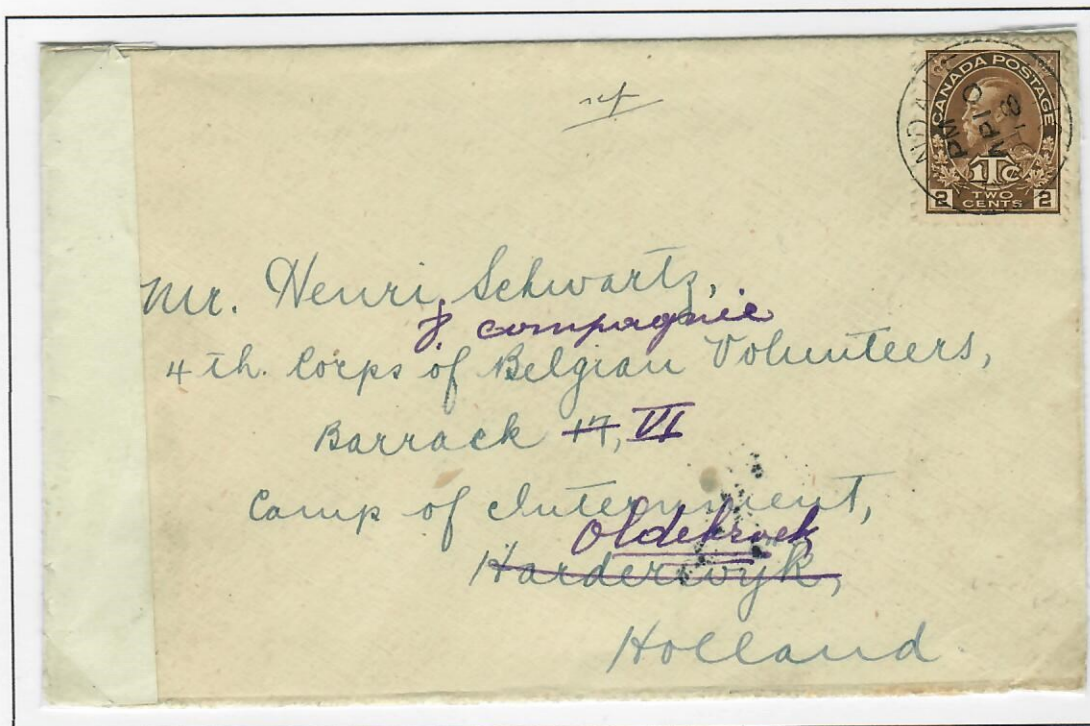 CANADA POSTAGE
1Tc
2 TWO CENTS 2
PM
AP 10
18
Mr. Henri Schwartz,
compagnie
4th. Corps of Belgian Volunteers,
Barrack 17, VI
Camp of Internment,
Oldebroek
Harderwyk,
Holland